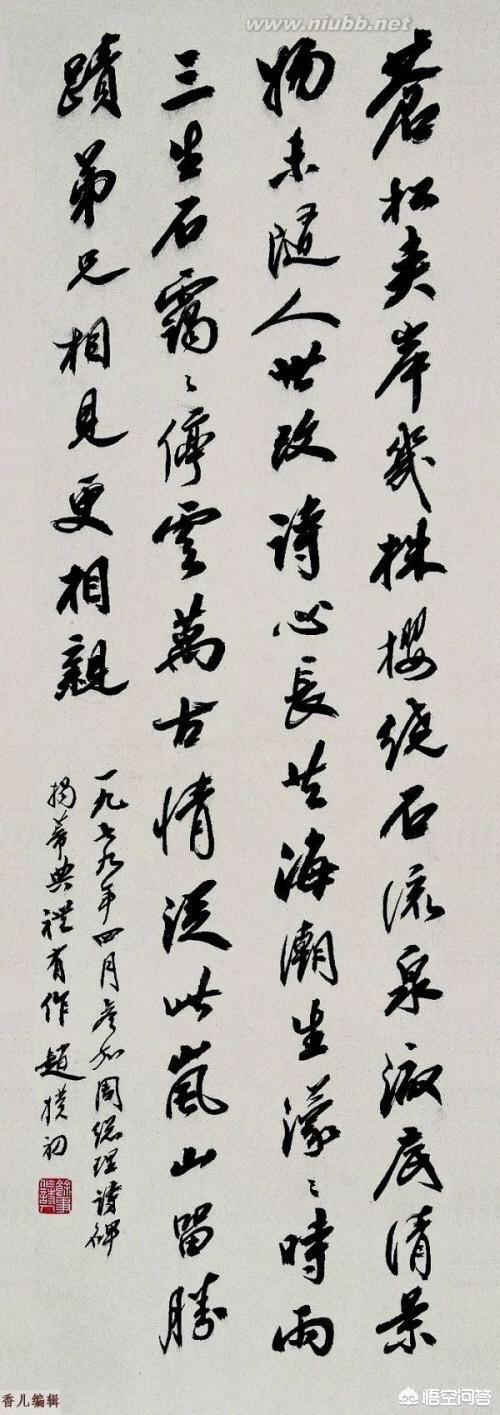 www.niubb.net
蒼松夾岸幾株櫻繞石流泉澈底清景
物未隨人世改詩心長共海潮生濛〻時雨
三生石靄〻停雲萬古情從此嵐山留勝
蹟弟兄相見更相親
一九七九年四月參加周總理詩碑
揭幕典禮有作 趙樸初
香儿编辑
悟空问答